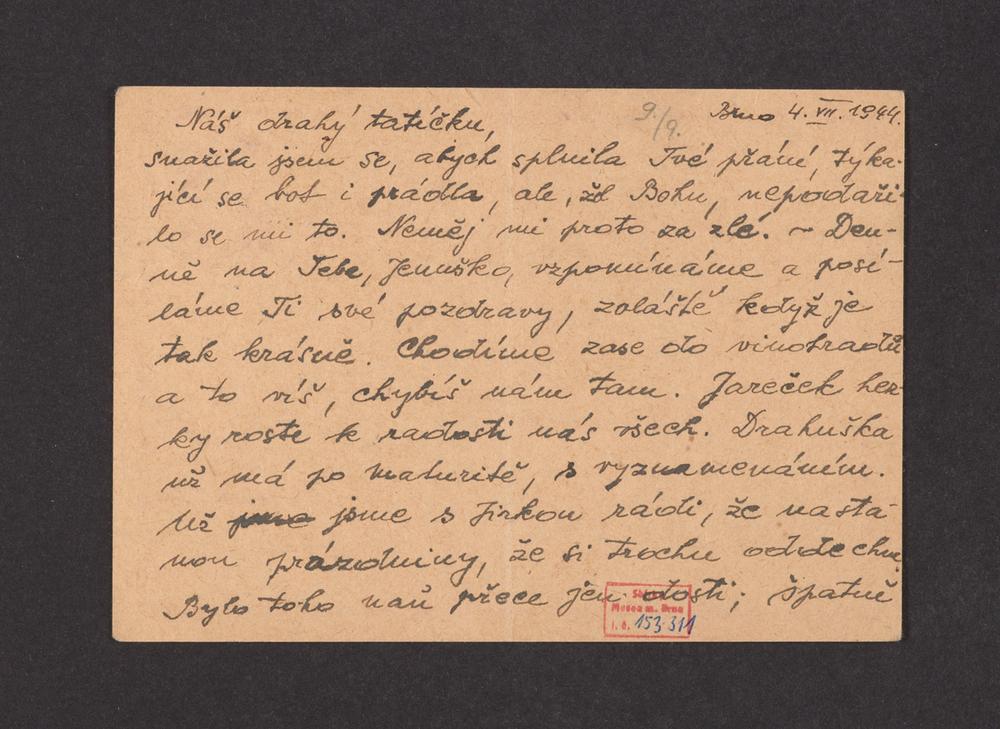 9./9.
Brno 4. VII. 1944.
Náš drahý tatíčku,
snažila jsem se, abych splnila Tvé přání, týka-
jící se bot i prádla, ale, žel Bohu, nepodaři-
lo se mi to. Neměj mi proto za zlé. ~ Den-
ně na Tebe, Jenuško, vzpomínáme a posí-
láme Ti své pozdravy, zvláště když je
tak krásně. Chodíme zase do vinohradů
a to víš, chybíš nám tam. Jareček hez-
ky roste k radosti nás všech. Drahuška
už má po maturitě, s vyznamenáním.
Už jsme s Jirkou rádi, že nasta-
nou prázdniny, že si trochu oddechnu
Bylo toho naň přece jen dosti; špatně
Musea m. Brna
i. č. 153.311